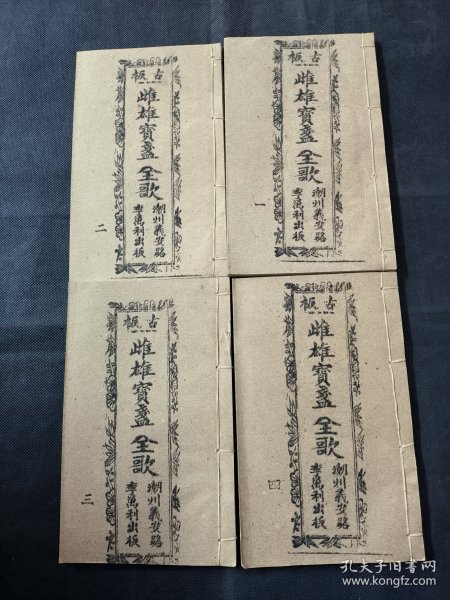 古板
雌雄寶盞全歌
潮州義安路
李萬利出板
一
古板
雌雄寶盞全歌
潮州義安路
李萬利出板
二
古板
雌雄寶盞全歌
潮州義安路
李萬利出板
三
古板
雌雄寶盞全歌
潮州義安路
李萬利出板
四
孔夫子旧书网
www.kongfz.com